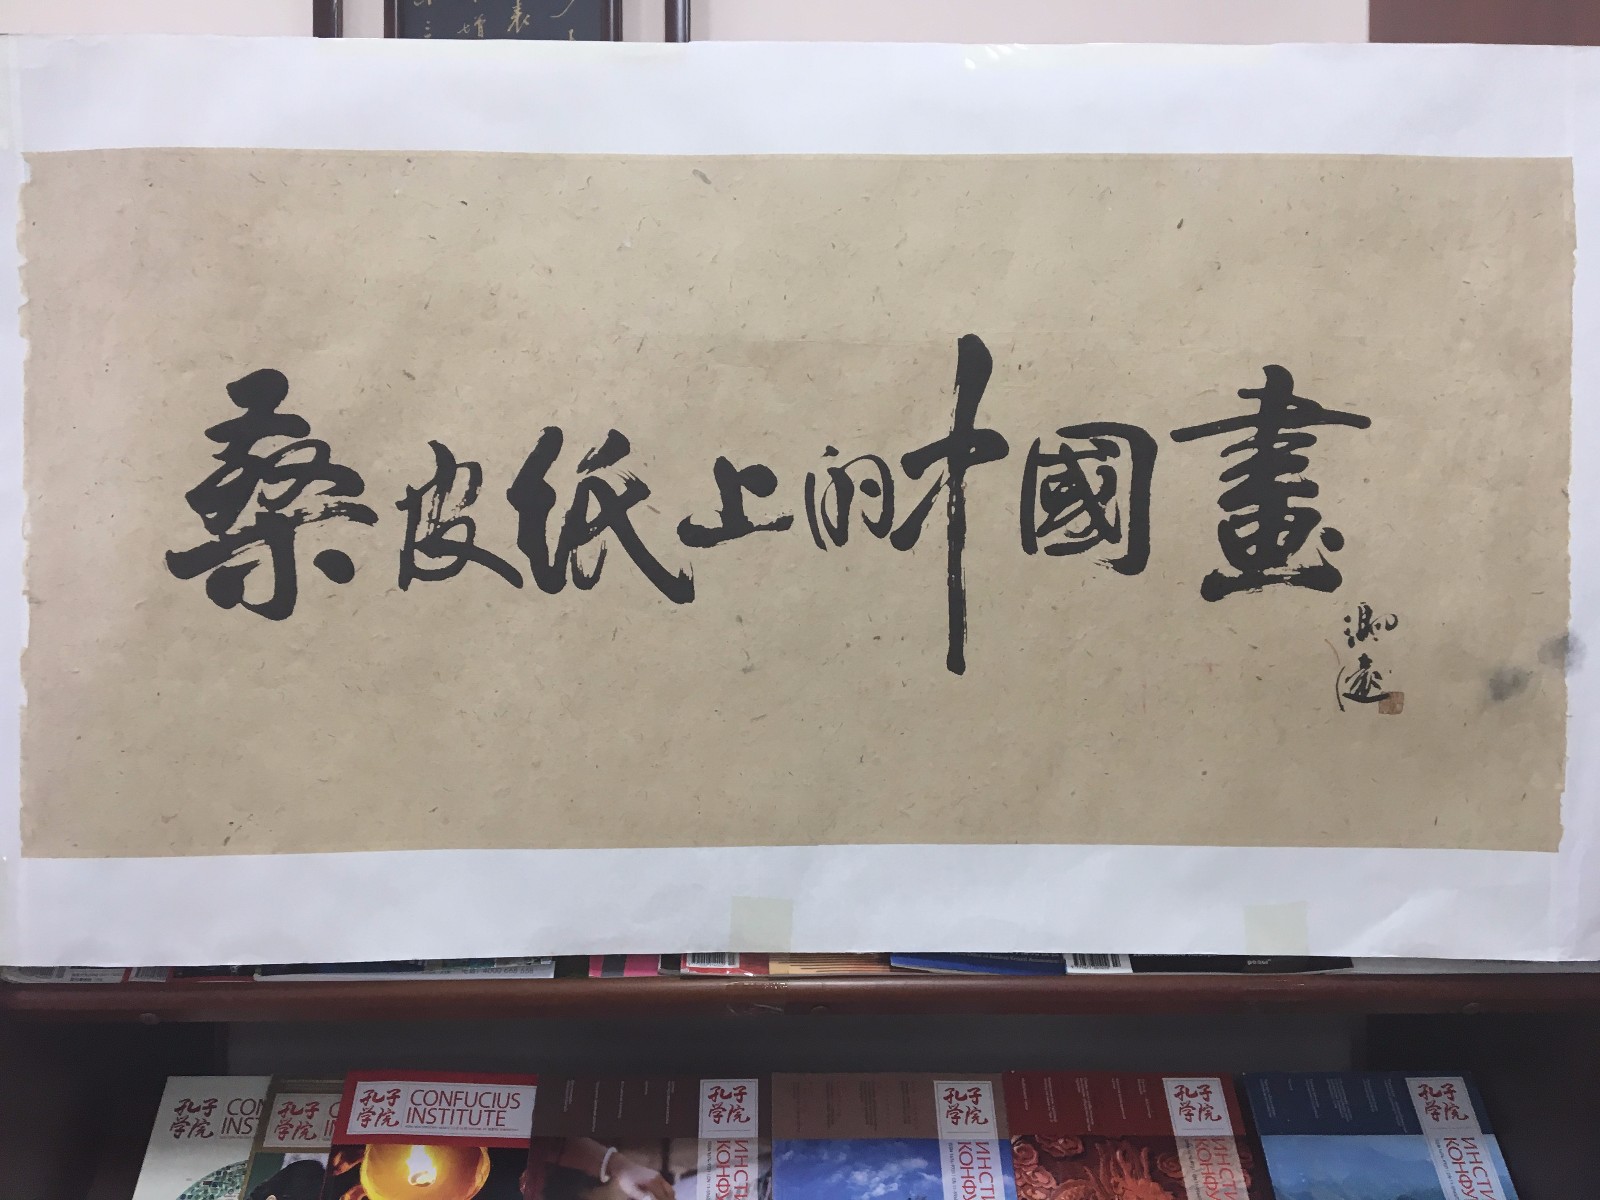 桑皮纸上的中國畫
孔子学院
CON
INST
孔子学院
孔子学院
CONFUCIUS
INSTITUTE
孔子学院
孔子学院
ИНСТИ
КОНФУ
孔子学院
ИНСТИ
КОНФУ
孔子学院
ИНСТИ
КОНФУ